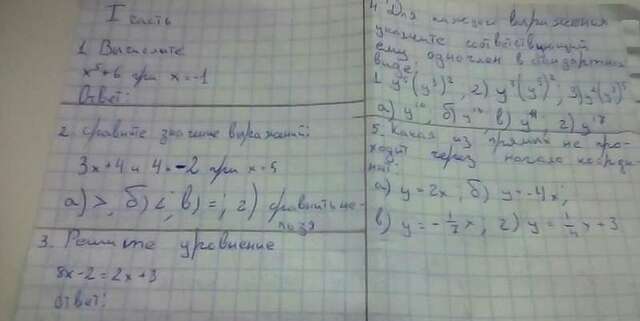 I часть
1. Вычислите
x⁵+6 при x=-1
Ответ:
2. сравните значение выражений:
3x+4 и 4x-2 при x=5
а) >, б) <, в) =; г) сравнить не-
льзя
3. Решите уровнение
8x-2=2x+3
ответ:
4. Для каждого выражения
укажите соответствующий
ему одночлен в стандартном
виде:
а) y¹⁰, б) y¹⁴, в) г) y¹⁸
5. Какая из прямых не про-
ходит через начало коорди-
нат:
а) y=2x, б) y=-4x;
в) y=-x; г) y=x+3